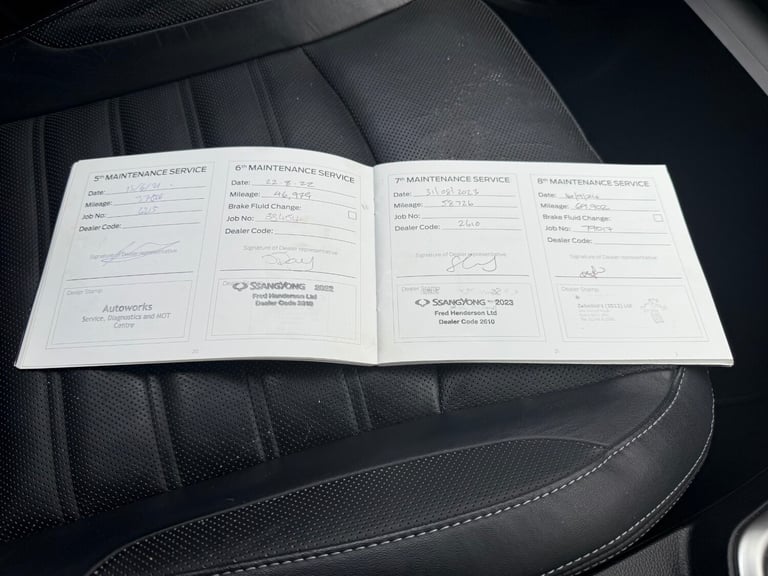 5th MAINTENANCE SERVICE
Date:
Mileage:
Job No:
Dealer Code:
Signature of Dealer representative
Dealer Stamp
Autoworks
Service, Diagnostics and MOT
Centre
6th MAINTENANCE SERVICE
Date: 22.8.22
Mileage: 46,979
Brake Fluid Change:
Job No:
Dealer Code:
Signature of Dealer representative
SSANGYONG 2022
Fred Henderson Ltd
Dealer Code 2610
7th MAINTENANCE SERVICE
Date: 31/08/2023
Mileage: 58726
Job No:
Dealer Code: 2610
Signature of Dealer representative
Dealer
SSANGYONG 2023
Fred Henderson Ltd
Dealer Code 2610
8th MAINTENANCE SERVICE
Date:
Mileage: 69,902
Brake Fluid Change:
Job No:
Dealer Code:
Signature of Dealer representative
Dealer Stamp